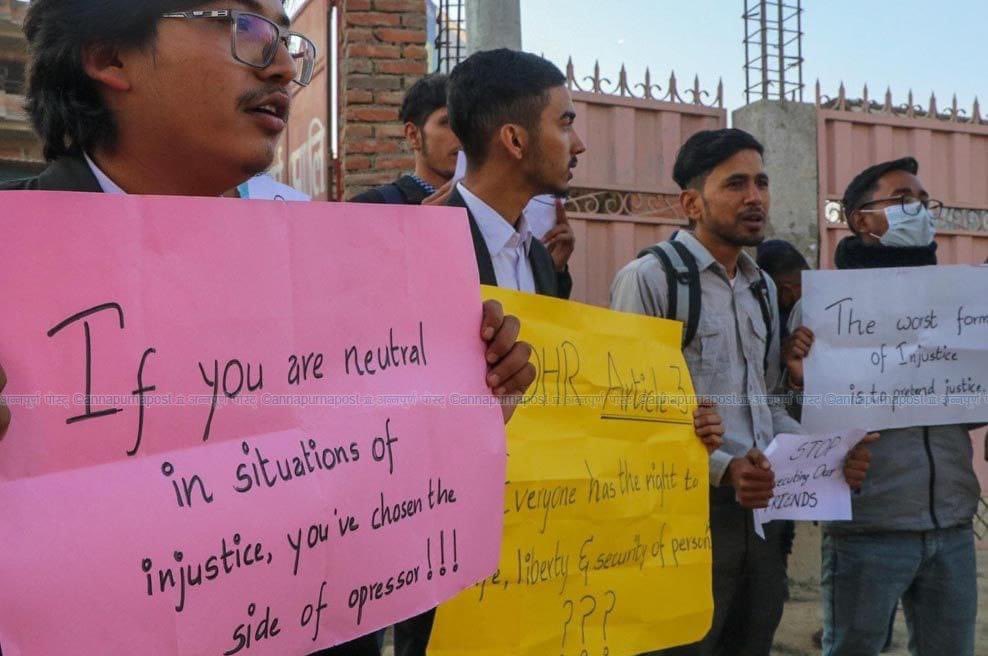 If you are neutral
in situations of
injustice, you've chosen the
side of opressor!!!
DHR Article-3
Everyone has the right to
life, liberty & security of person
???
The worst form
of Injustice
is to pretend justice.
STOP
executing Our
FRIENDS
अन्नपूर्ण पोस्ट् ©annapurnapost अन्नपूर्ण पोस्ट् ©annapurnapost अन्नपूर्ण पोस्ट् ©annapurnapost अन्नपूर्ण पोस्ट् ©annapurnapost अन्नपूर्ण पोस्ट्